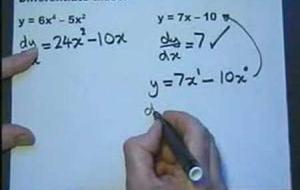 y = 6x⁴ - 5x²
dy/dx = 24x³ - 10x
y = 7x - 10
dy/dx = 7 ✓
y = 7x¹ - 10x⁰
d